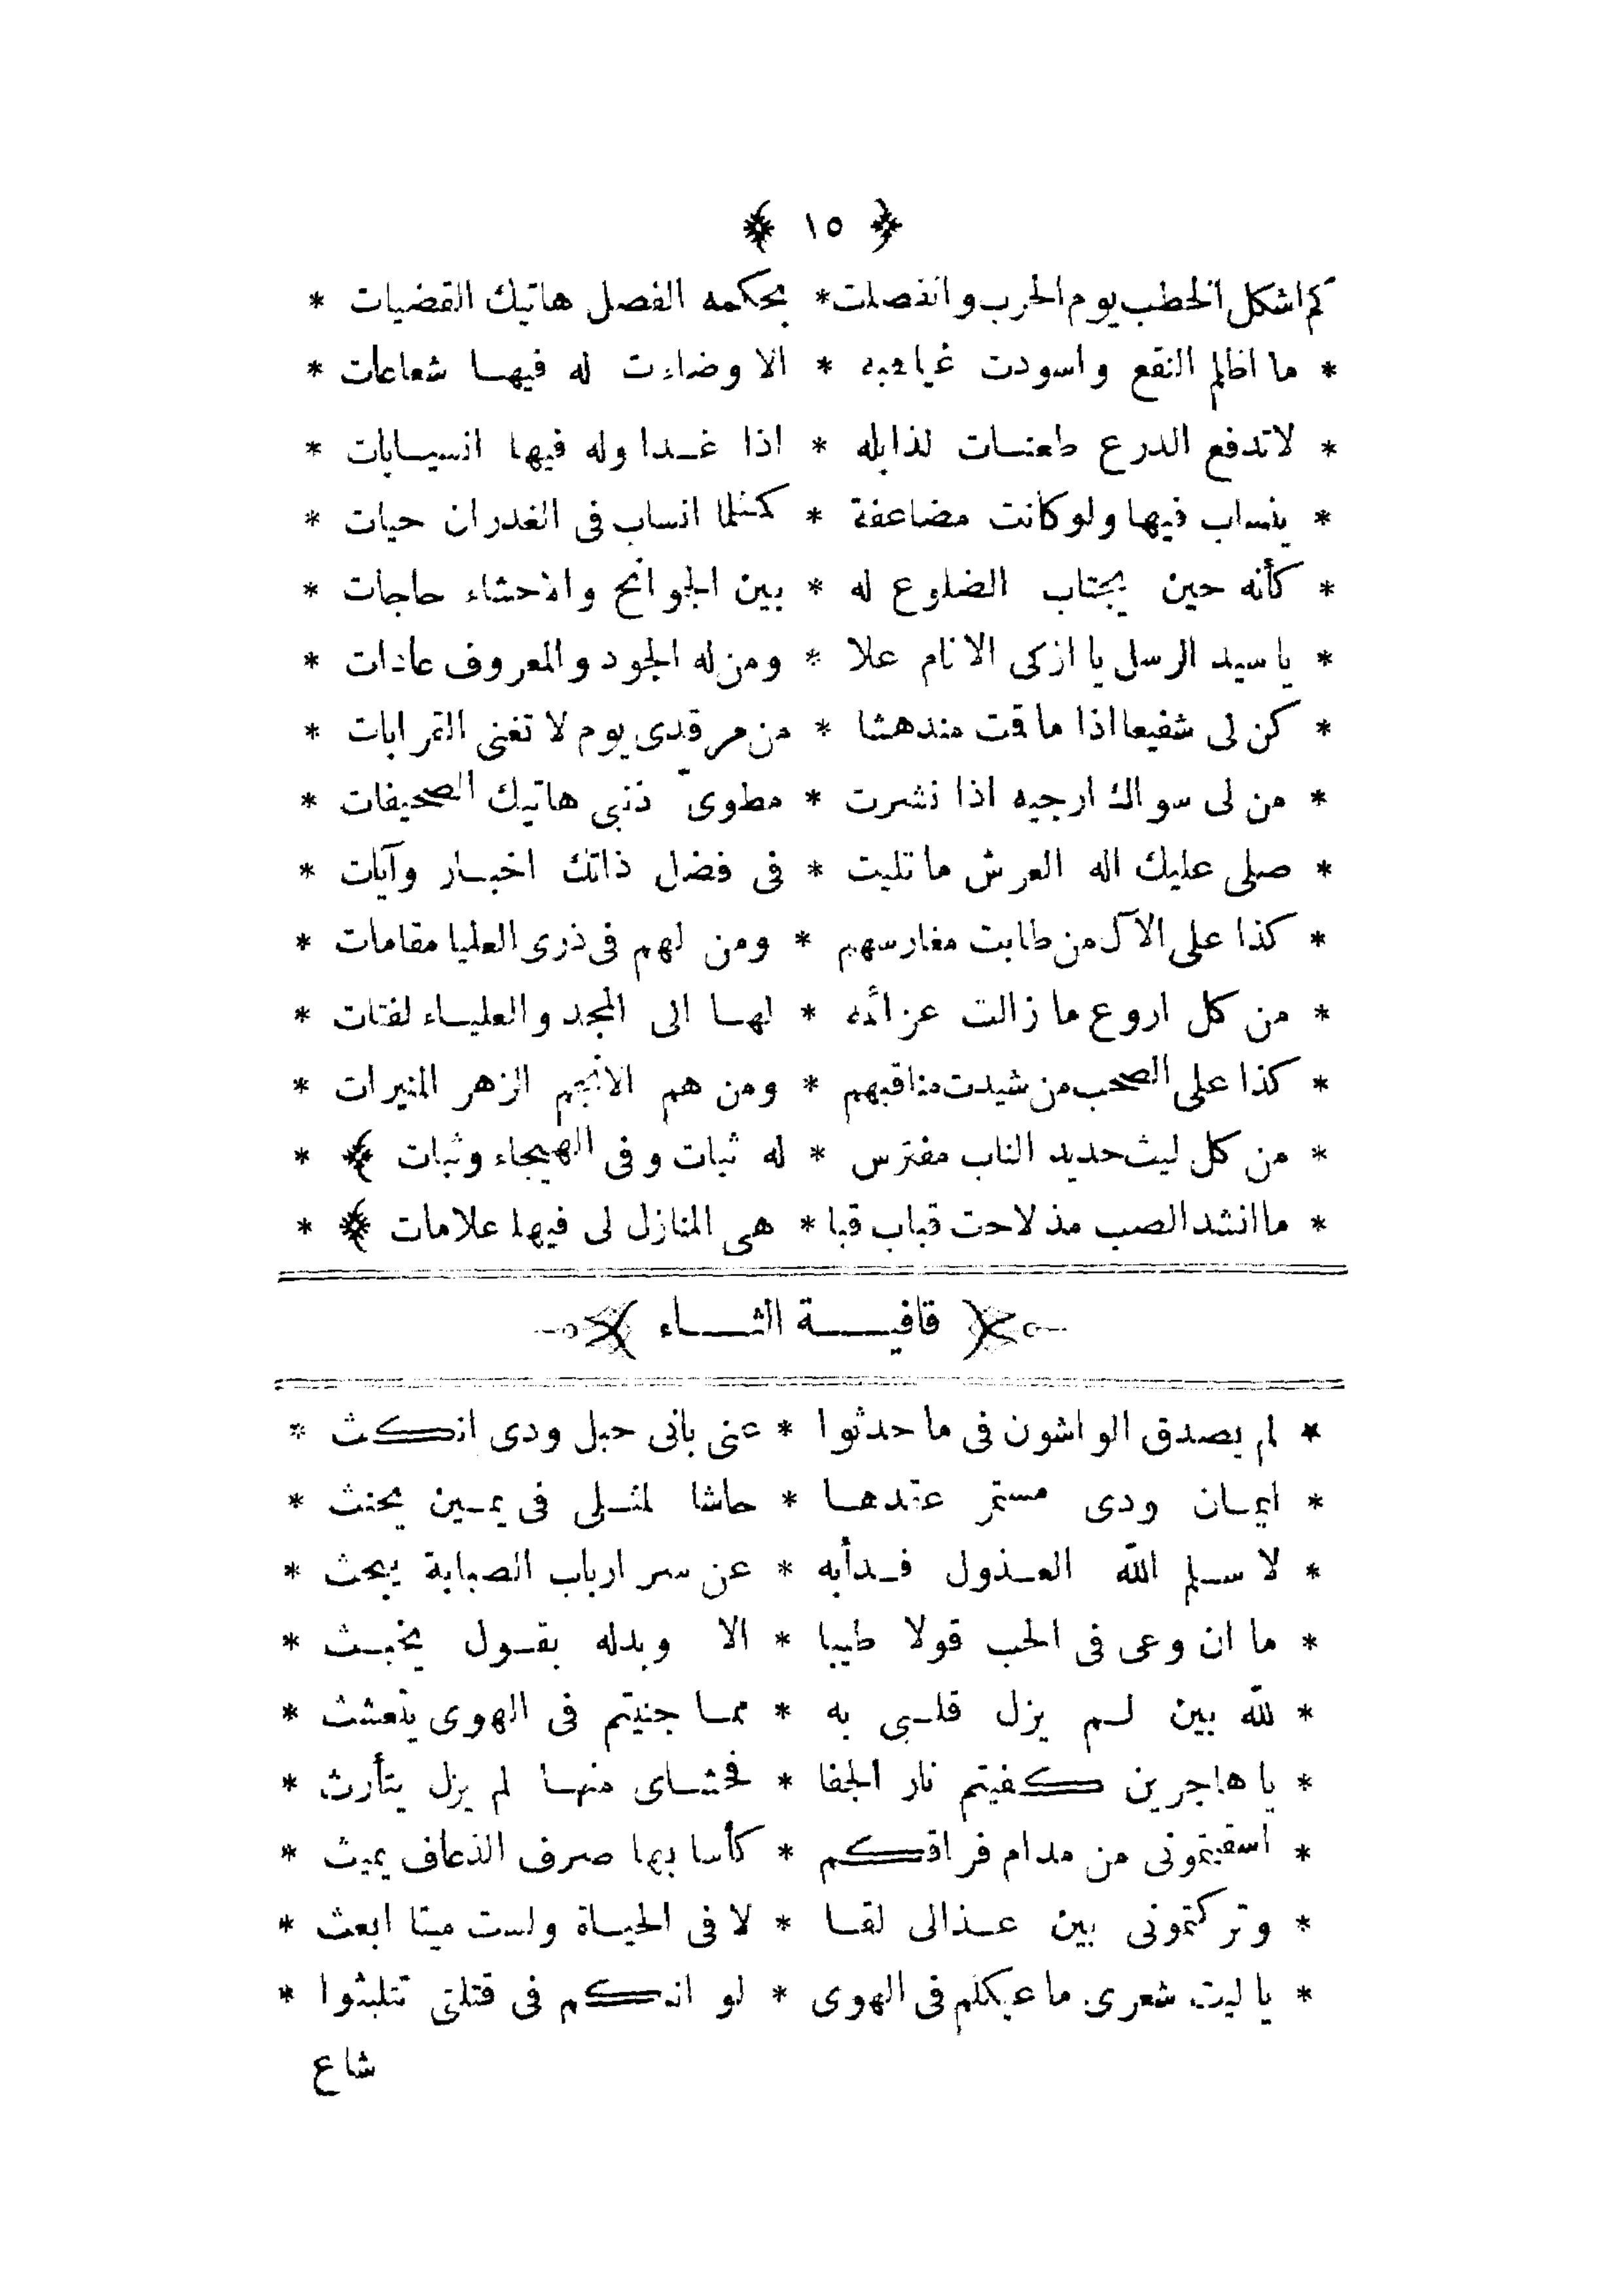 ﴿ ١٥ ﴾
كم اشكل الخطب يوم الحرب وانفصلت * بحكمه الفصل هاتيك القضيات *
* ما اظلم النقع واسودت غياهبه * الا وضاءت له فيهـا شعاعات *
* لاتدفع الدرع طعنـات لذابله * اذا غـدا وله فيها انسيـابات *
* ينساب فيها ولوكانت مضاعفة * كمثلما انساب فى الغدران حيات *
* كأنه حين يجتاب الضلوع له * بين الجوانح والاحشاء حاجات *
* ياسيد الرسل يا ازكى الانام علا * ومن له الجود والمعروف عادات *
* كن لى شفيعا اذا ماقت مندهشا * من مرقدى يوم لا تغنى القرابات *
* من لى سواك ارجيه اذا نشرت * مطوىّ ذنبى هاتيك الصحيفات *
* صلى عليك اله العرش ماتليت * فى فضل ذاتك اخبـار وآيات *
* كذا على الآل من طابت مغارسهم * ومن لهم فى ذرى العليا مقامات *
* من كل اروع ما زالت عزائمه * لهـا الى المجد والعليـاء لفتات *
* كذا على الصحب من شيدت مناقبهم * ومن هم الانجم الزهر المنيرات *
* من كل ليث حديد الناب مفترس * له ثبات وفى الهيجاء وثبات ﴾ *
* ما انشد الصب مذ لاحت قباب قبا * هى المنازل لى فيها علامات ﴾ *
﴿ قافيـــة الثـــاء ﴾
* لم يصدق الواشون فى ما حدثوا * عنى بانى حبل ودى انكث *
* ايمـان ودى مستمر عقدهـا * حاشا لمثـلى فى يمـين يحنث *
* لا سـلم الله العـذول فـدأبه * عن سر ارباب الصبابة يبحث *
* ما ان وعى فى الحب قولا طيبا * الا وبدله بقـول يخبـث *
* لله بين لـم يزل قلـبى به * ممـا جنيتم فى الهوى يتعثث *
* يا هاجرين كفيتم نار الجفا * فحشـاى منهـا لم يزل يتأرث *
* اسقيتمونى من مدام فراقكم * كأسا بها صرف الذعاف يميث *
* وتركتمونى بين عـذالى لقـا * لا فى الحيـاة ولست ميتا ابعث *
* يا ليت شعرى ما عيكلم فى الهوى * لو انكم فى قتلتى تتلبثوا *
شاع